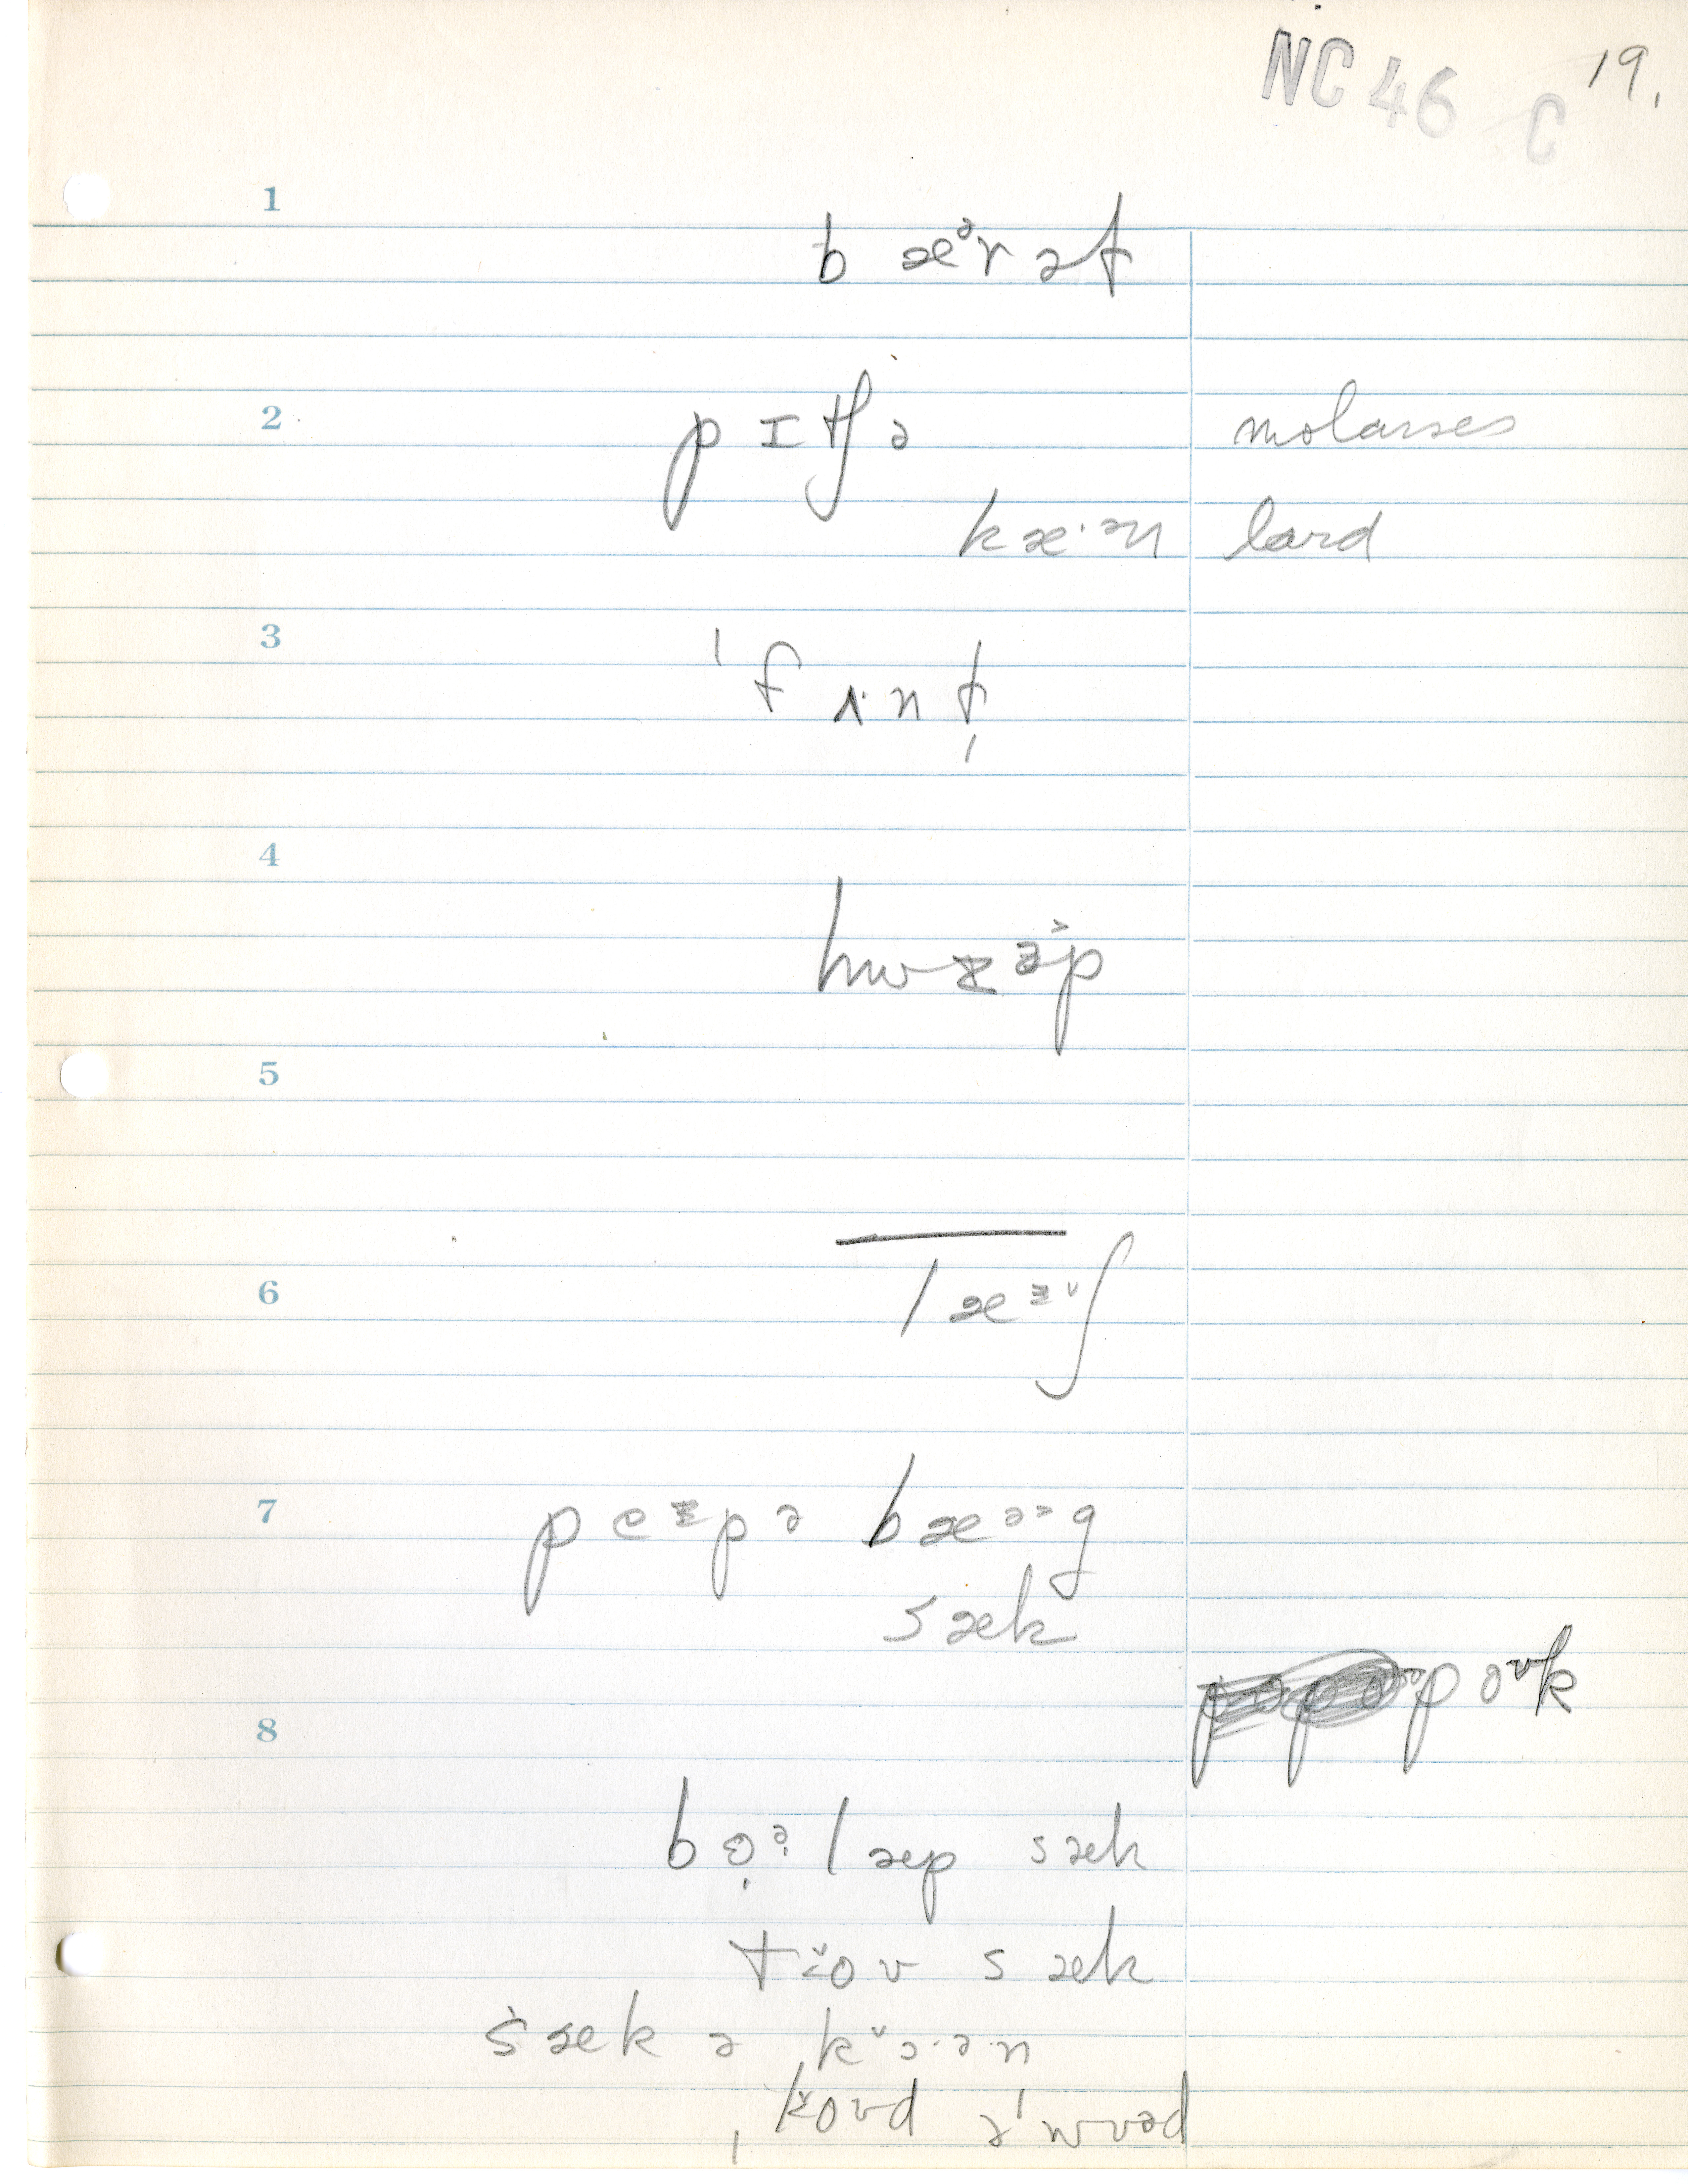 NC 46 C 19.
1
b æᵊr ə t
2 p ɪ tʃ ə molasses
k æ·ən lard
3
ˈf ʌ·n ḷ
4
hw ɪ p
5
6 l æ ᶤ ʃ
7 p e ᶤ p ə b æ ə g
s æ k
p o ʊ k
8
b ọ ə l æ p s æ k
t o ʊ s æ k
s æ k ə k ɔ·ə·n
ˌk o ʊ d ə ˈw ʊ ə d